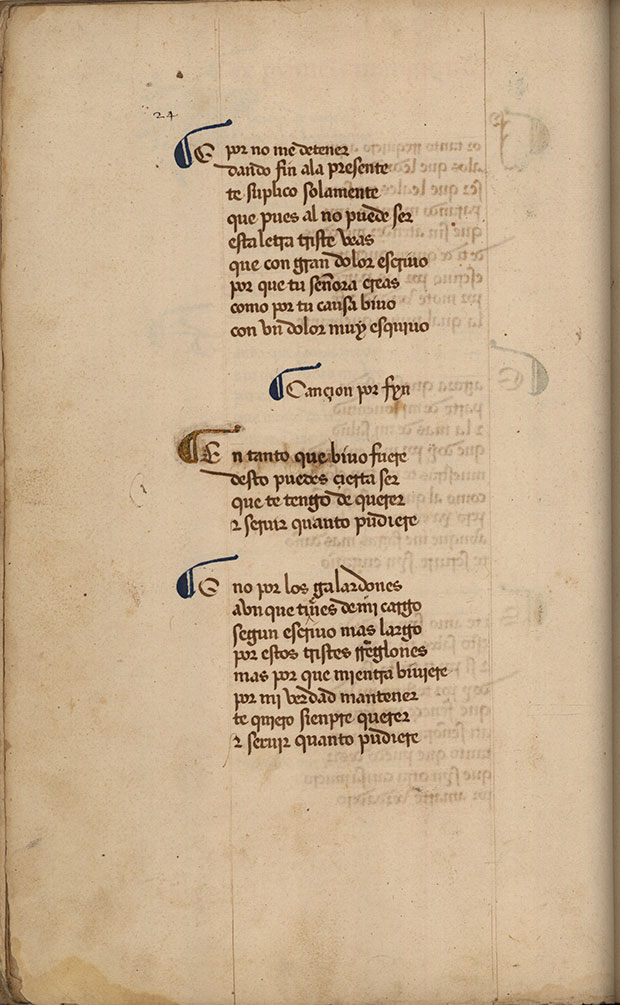 24
E por no me detener
dando fin ala presente
te suplico solamente
que pues al no puede ser
esta letra triste veas
que con gran dolor escriuo
por que tu señora creas
como por tu causa biuo
con vn dolor muy esquiuo
Cançion por fyn
En tanto que biuo fuere
desto puedes çierta ser
que te tengo de querer
⁊ seruir quanto pudiere
E no por los galardones
avn que tienes de mi cargo
segun escriuo mas largo
por estos tristes rreglones
mas por que mientra biuiere
por mi verdad mantener
te quiero sienpre querer
⁊ seruir quanto pudiere